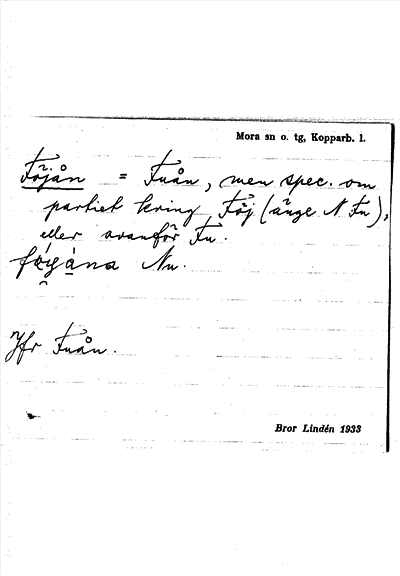 Mora sn o. tg, Kopparb. l.
Föjån = Fuån, men spec. om
partiet kring Föj (änge N Fu),
eller ovanför Fu.
Nu.
Jfr Fuån.
Bror Lindén 1933